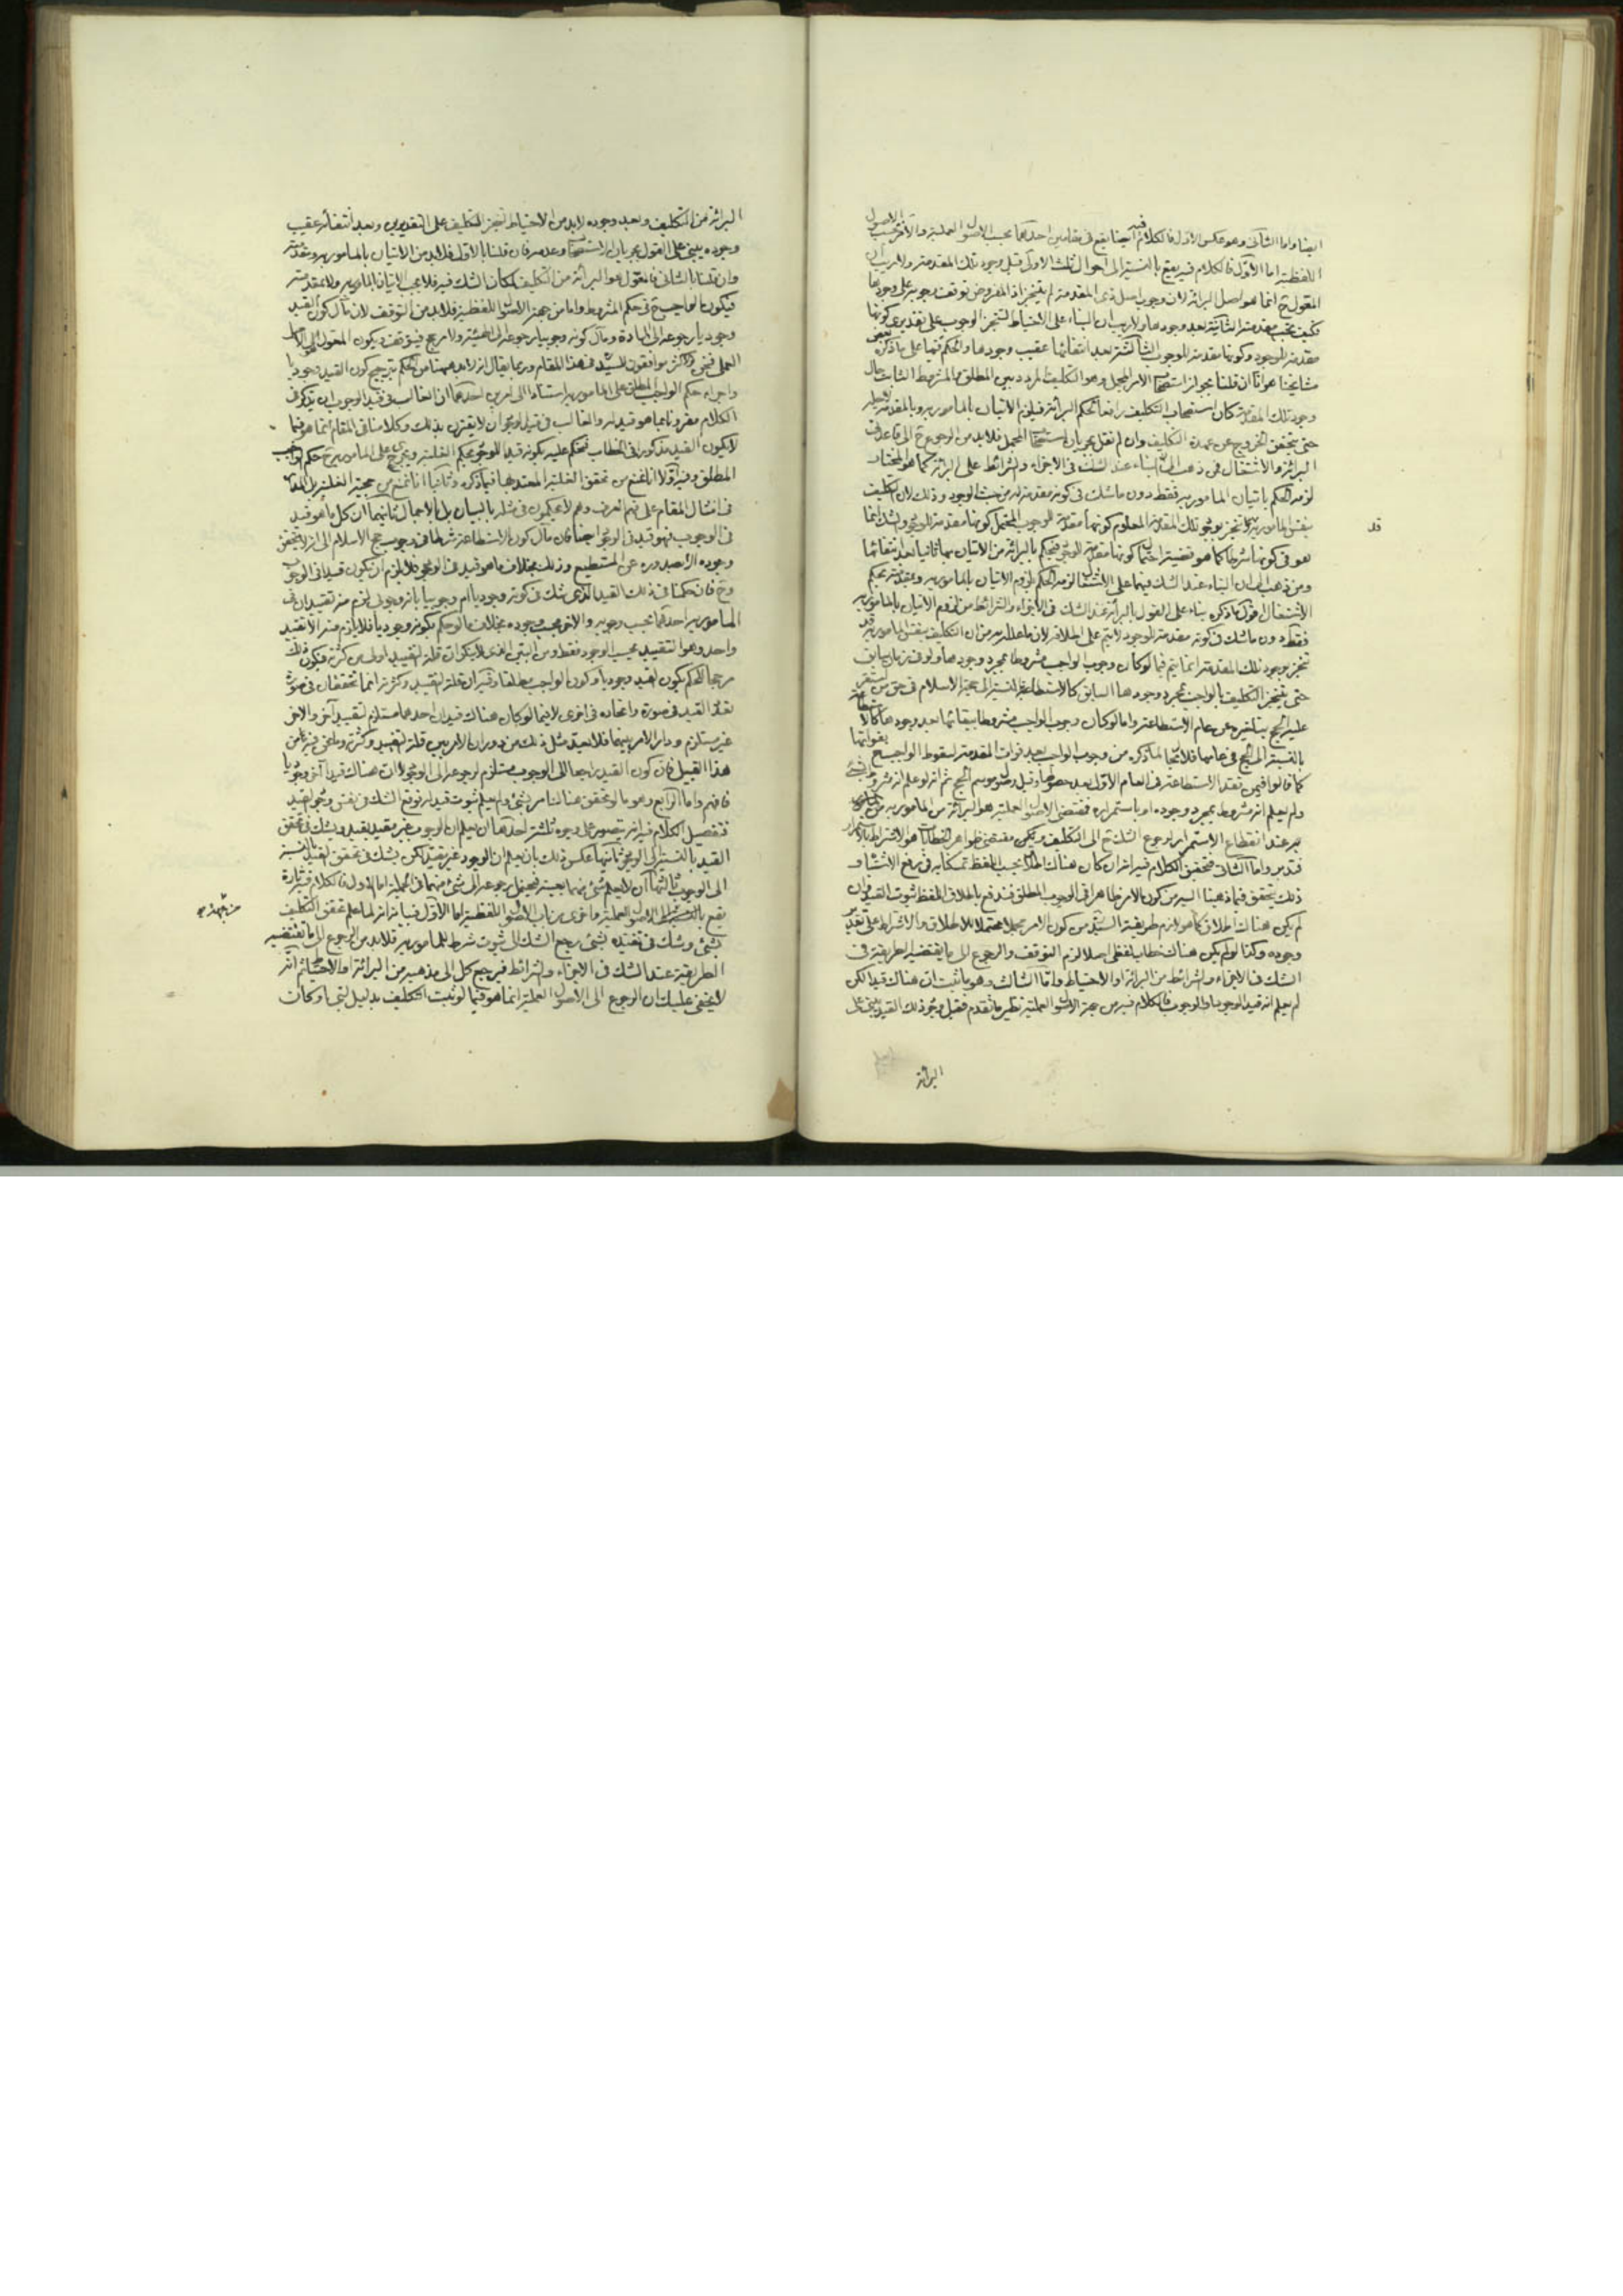 ايضا واما الثانى وهو عكس الاول فالكلام فيه ايضا يقع فى مقامين احدهما بحسب الاصول العملية والاخر بحسب الاصول
اللفظية اما الأول فالكلام فيه يقع بالنسبة الى احوال ثلث الاولى قبل وجود تلك المقدمة ولا ريب ان
المقول ح انما هو اصل البرائة لان وجوب اصل ذى المقدمة لم يتنجز اذ المفروض توقف وجوبه على وجودها
فكيف بمقدمته الثانية بعد وجودها ولا ريب ان البناء على الاحتياط لتنجز الوجوب على تقديرى كونها
مقدمة للوجود وكونها مقدمة للوجوب الثالثة بعد انتفائها عقيب وجودها والحكم فيها على ما ذكره بعض
مشايخنا هو انا ان قلنا بجواز استصحاب الامر المجمل وهو التكليف المردد بين المطلق والمشروط الثابت حال
وجود تلك المقدمة كان استصحاب التكليف رافعا لحكم البرائة فيلزم الاتيان بالمامور به وبالمقدمة
حتى يتحقق الخروج عن عهدة التكليف وان لم نقل بجريان استصحاب المجمل فلابد من الرجوع ح الى قاعدتى
البرائة والاشتغال فمن ذهب الى ان البناء عند الشك فى الاجزاء والشرائط على البرائة كما هو المختار
لزمه الحكم باتيان المامور به فقط دون ما شك فى كونه مقدمة له من حيث الوجود وذلك لان التكليف
بنفس المامور به قد تنجز بوجود تلك المقدمة المعلوم كونها مقدمة للوجوب المحتمل كونها مقدمة للوجود والشك انما
قد
هو فى كونها شرطا كما هو قضية احتمال كونها مقدمة للوجود فيحكم بالبرائة من الاتيان بها ثانيا بعد انتفائها
ومن ذهب الى ان البناء عند الشك فيهما على الاشتغال لزمه الحكم بلزوم الاتيان بالمامور به وبمقدمته بحكم
الاشتغال اقول ما ذكره بناء على القول بالبرائة عند الشك فى الاجزاء والشرائط من لزوم الاتيان بالمامور به
فقط دون ما شك فى كونه مقدمة الوجود لا يتم على اطلاقه لان ما علله به من ان التكليف بنفس المامور به قد
تنجز بوجود تلك المقدمة انما يتم فيما لو كان وجوب الواجب مشروطا بمجرد وجودها ولو فى زمان سابق
حتى يتنجز التكليف بالواجب بمجرد وجودها السابق كالاستطاعة بالنسبة الى حجة الاسلام فى حق من استقر
عليه الحج بتاخيره عن عام الاستطاعة واما لو كان وجوب الواجب مشروطا ببقائها بعد وجودها كالاستطاعة
بالنسبة الى الحج فى عامها فلا يتجه ما ذكره من وجوب الواجب بعد فوات المقدمة لسقوط الواجب ح بفواتها
كما قالوا فيمن فقد الاستطاعة فى العام الاول بعد حصولها وقبل وصول موسم الحج ثم انه لو علم انه مشروط بشئ
ولم يعلم انه مشروط بمجرد وجوده او باستمراره فمقتضى الاصول العملية هو البرائة من المامور به
عند انقطاع الاستمرار لرجوع الشك ح الى التكليف ولكن مقتضى ظواهر الخطابات هو الاشتراط بالاستمرار
فتدبر واما الثانى فتحقيق الكلام فيه انه ان كان هناك اطلاق بحسب اللفظ تمسكنا به فى رفع الاشتباه و
ذلك يتحقق فيما ذهبنا اليه من كون الامر ظاهرا فى الوجوب المطلق فندفع باطلاق اللفظ ثبوت القيد وان
لم يكن هناك اطلاق كما هو لازم طريقة السيد من كون الامر مجملا محتملا للاطلاق والاشتراط على تقدير
وجوده وكذا لو لم يكن هناك خطاب لفظى اصلا لزم التوقف والرجوع الى ما يقتضيه الطريقة فى
الشك فى الاجزاء والشرائط من البرائة او الاحتياط واما الثالث وهو ما ثبت ان هناك قيدا لكن
لم يعلم انه قيد الوجود او الوجوب فالكلام فيه من جهة الاصول العملية نظير ما تقدم فقبل وجود ذلك القيد يبنى على
البرائة
البرائة من التكليف وبعد وجوده لابد من الاحتياط لتنجز التكليف على التقديرين وبعد انتفائه عقيب
وجوده يبنى على القول بجريان الاستصحاب وعدمه فان قلنا بالاول فلابد من الاتيان بالمامور به ومقدمته
وان قلنا بالثانى فالمقول هو البرائة من التكليف لمكان الشك فيه فلا يجب الاتيان بالمامور به ولا بمقدمته
فيكون الواجب ح فى حكم المشروط واما من جهة الاصول اللفظية فلابد من التوقف لان مآل كون القيد
وجوديا رجوعه الى المادة ومآل كونه وجوبيا رجوعه الى الهيئة ولا مرجح فيتوقف ويكون المعول هو الاصل
العملى فنحن والاكثر موافقون للسيد فى هذا المقام وربما يقال انه لابد ههنا من الحكم بترجيح كون القيد وجوديا
واجراء حكم الواجب المطلق على المامور به استنادا الى امرين احدهما ان الغالب فى قيد الوجوب ان يذكر فى
الكلام مقرونا بما هو قيد له والغالب فى قيد الوجود ان لا يقترن بذلك وكلامنا فى المقام انما هو فيما
لا يكون القيد مذكورا فى الخطاب فنحكم عليه بكونه قيدا للوجود بحكم الغلبة ويجرى على المامور به ح حكم الواجب
المطلق وفيه اولا انا نمنع من تحقق الغلبة المعتد بها فيما ذكره وثانيا انا نمنع من حجية الغلبة بل المدار
فى امثال المقام على فهم العرف وهم لا يحكمون فى مثله بالبيان بل بالاجمال ثانيهما ان كل ما هو قيد
فى الوجوب فهو قيد فى الوجود ايضا فان مآل كون الاستطاعة شرطا فى وجوب حج الاسلام الى انه لا يتحقق
وجوده الا بصدوره عن المستطيع وذلك بخلاف ما هو قيد فى الوجود فلا يلزم ان يكون قيدا فى الوجوب
وح فان حكمنا فى ذلك القيد الذى شك فى كونه وجوديا ام وجوبيا بانه وجوبى لزم منه تقييدان فى
المامور به احدهما بحسب وجوبه والاخر بحسب وجوده بخلاف ما لو حكم بكونه وجوديا فلا يلزم منه الا تقييد
واحد وهو التقييد بحسب الوجود فقط ومن البين الذى لا ينكر ان قلة التقييد اولى من كثرته فيكون ذلك
مرجحا للحكم بكون القيد وجوديا وكون الواجب مطلقا وفيه ان قلة التقييد وكثرته انما تتحققان فى صورة
تعدد القيد فى صورة واتحاده فى اخرى لا فيما لو كان هناك قيدان احدهما مستلزم لتقييد آخر والاخر
غير مستلزم ودار الامر بينهما فلا يعد مثل ذلك من دوران الامر بين قلة التقييد وكثرته وما نحن فيه من
هذا القبيل فان كون القيد راجعا الى الوجوب مستلزم لرجوعه الى الوجود لا ان هناك قيدا آخر وجوديا
فافهم واما الرابع وهو ما لو تحقق هناك امر بشئ ولم يعلم ثبوت قيد له فوقع الشك فى نفس وجود القيد
فتفصيل الكلام فيه انه يتصور على وجوه ثلثة احدها ان يعلم ان الوجوب غير مقيد بقيد ويشك فى تحقق
القيد بالنسبة الى الوجود ثانيها عكس ذلك بان يعلم ان الوجود غير مقيد لكن يشك فى تحقق القيد بالنسبة
الى الوجوب ثالثها ان لا يعلم شئ منهما بعينه فيحتمل رجوعه الى شئ منهما فى الجملة اما الاول فالكلام فيه تارة
يقع بالنسبة الى الاصول العملية واخرى من باب الاصول اللفظية اما الاول فبيانه انه لما علم تحقق التكليف
بشئ وشك فى تقييده بشئ يرجع الشك الى ثبوت شرط للمامور به فلابد من الرجوع الى ما تقتضيه
الطريقة عند الشك فى الاجزاء والشرائط فيرجع كل الى مذهبه من البرائة او الاحتياط ثم انه
لا يخفى عليك ان الرجوع الى الاصول العملية انما هو فيما لو ثبت التكليف بدليل لبى او كان